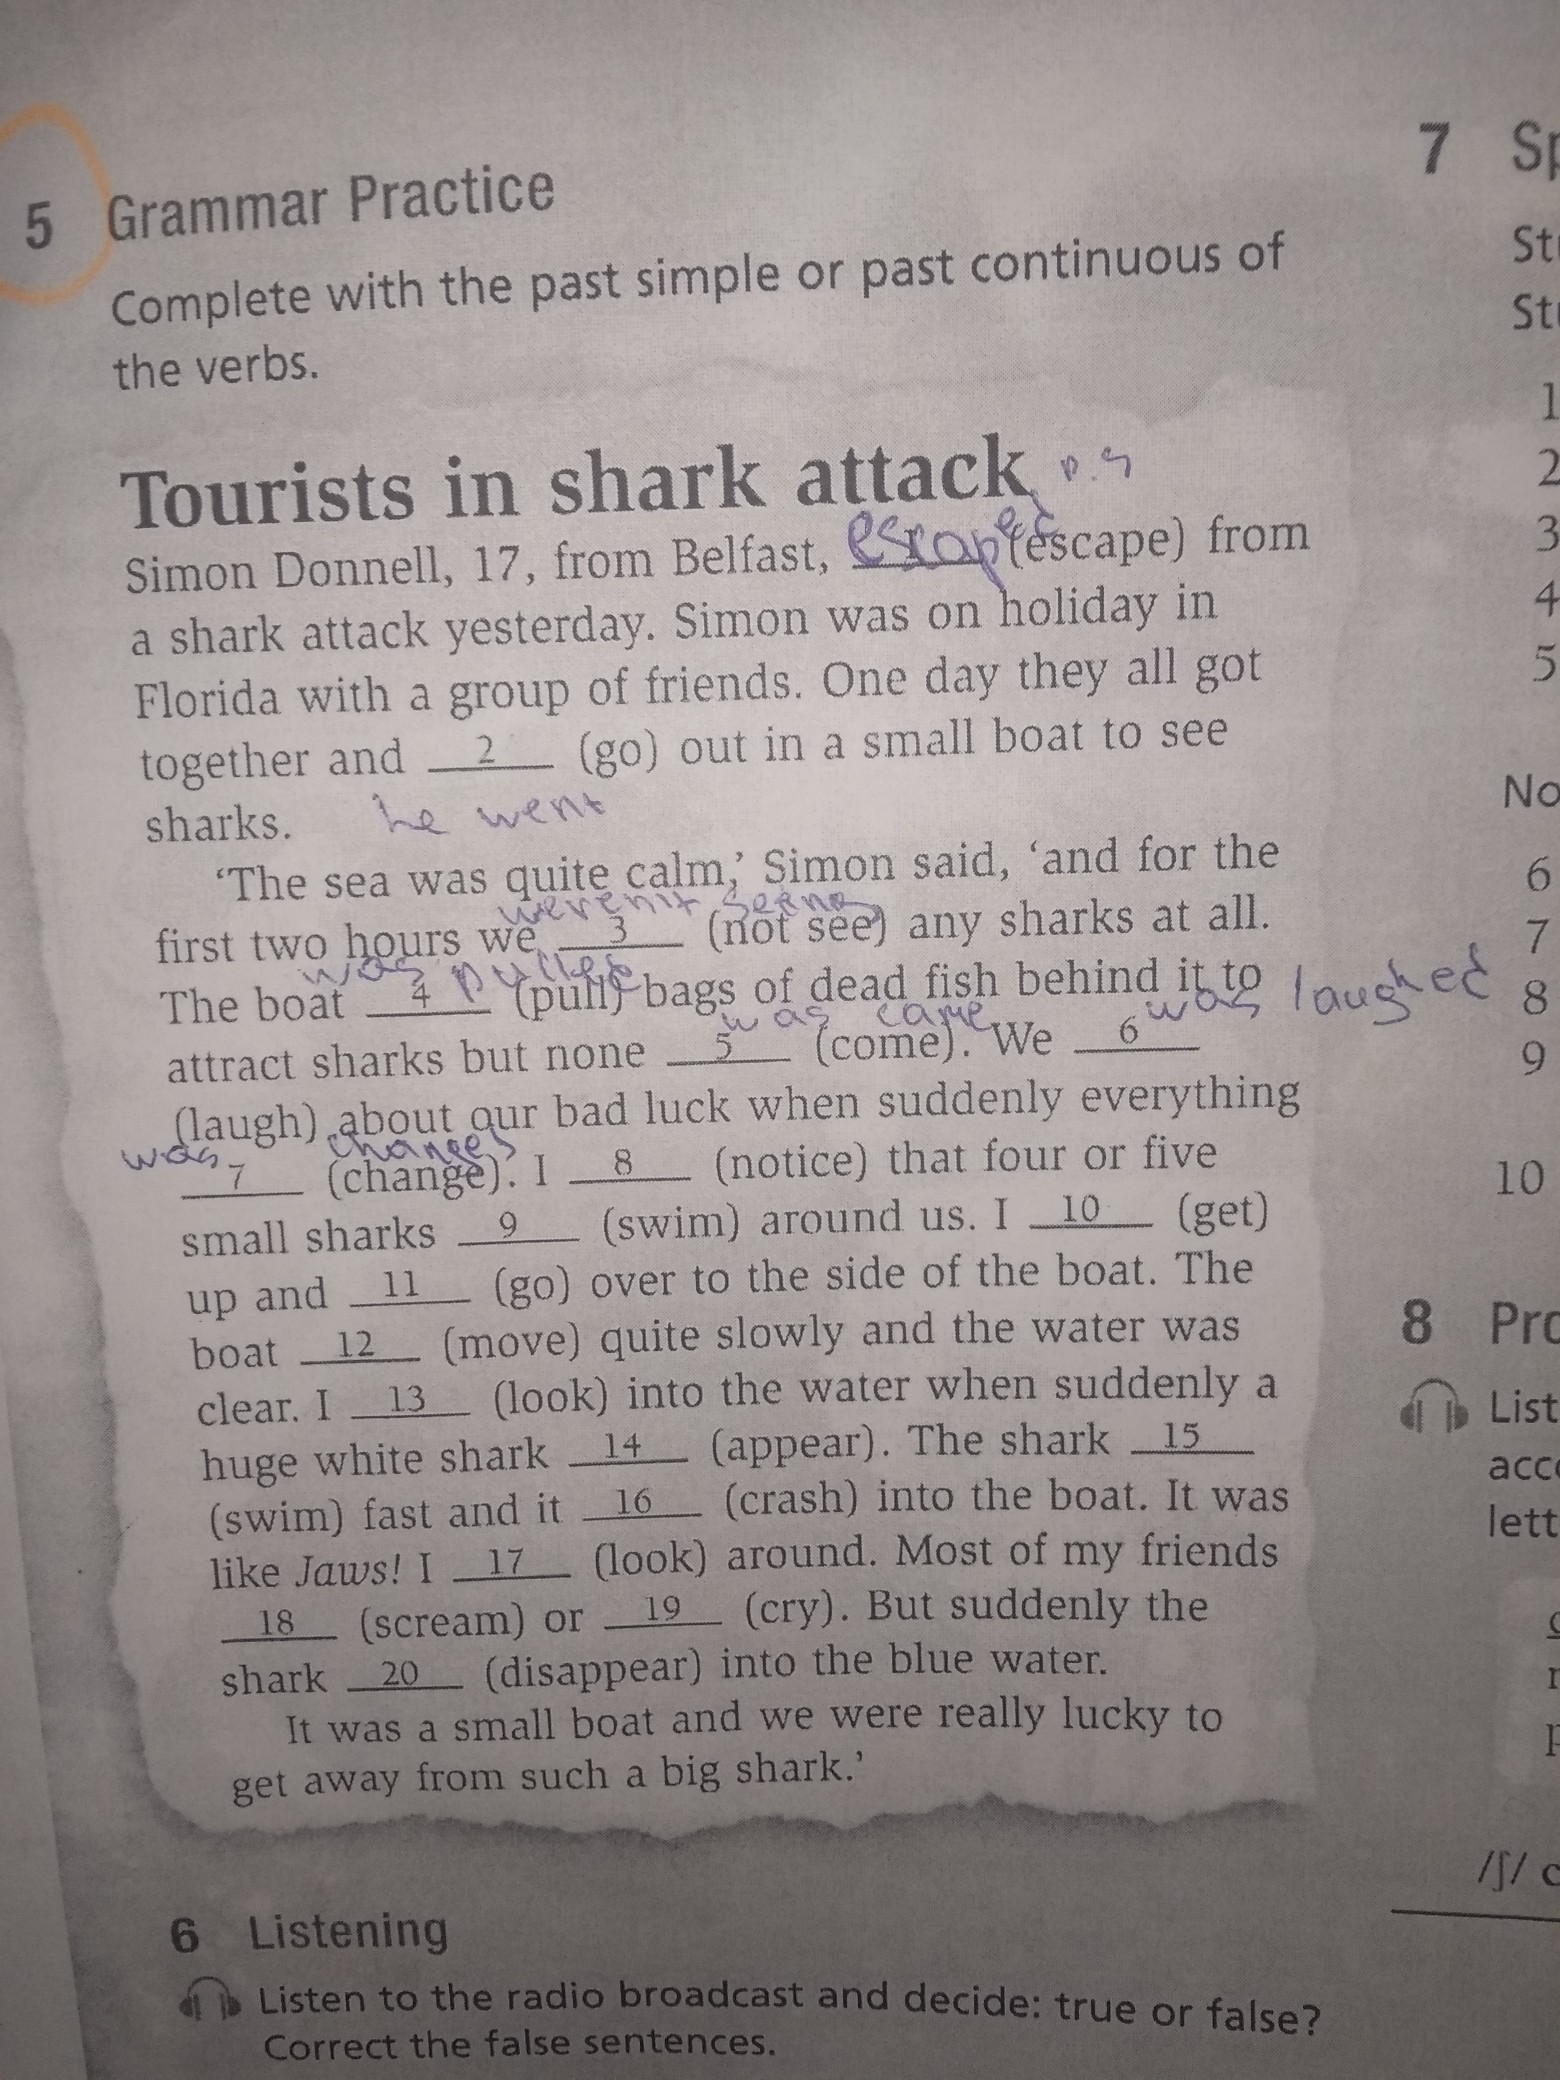 7 Sp
5 Grammar Practice
St
Complete with the past simple or past continuous of
St
the verbs.
1
Tourists in shark attack p.s
2
escaped
3
Simon Donnell, 17, from Belfast, 1 (escape) from
4
a shark attack yesterday. Simon was on holiday in
5
Florida with a group of friends. One day they all got
together and 2 (go) out in a small boat to see
No
sharks. he went
'The sea was quite calm,' Simon said, 'and for the
6
weren't
first two hours we 3 (not see) any sharks at all.
7
was pulled
The boat 4 (pull) bags of dead fish behind it to
8
was came was laughed
attract sharks but none 5 (come). We 6
9
(laugh) about our bad luck when suddenly everything
was changed
7 (change). I 8 (notice) that four or five
10
small sharks 9 (swim) around us. I 10 (get)
up and 11 (go) over to the side of the boat. The
8 Pro
boat 12 (move) quite slowly and the water was
List
clear. I 13 (look) into the water when suddenly a
acc
huge white shark 14 (appear). The shark 15
lett
(swim) fast and it 16 (crash) into the boat. It was
like Jaws! I 17 (look) around. Most of my friends
18 (scream) or 19 (cry). But suddenly the
shark 20 (disappear) into the blue water.
It was a small boat and we were really lucky to
get away from such a big shark.'
/ʃ/ c
6 Listening
Listen to the radio broadcast and decide: true or false?
Correct the false sentences.